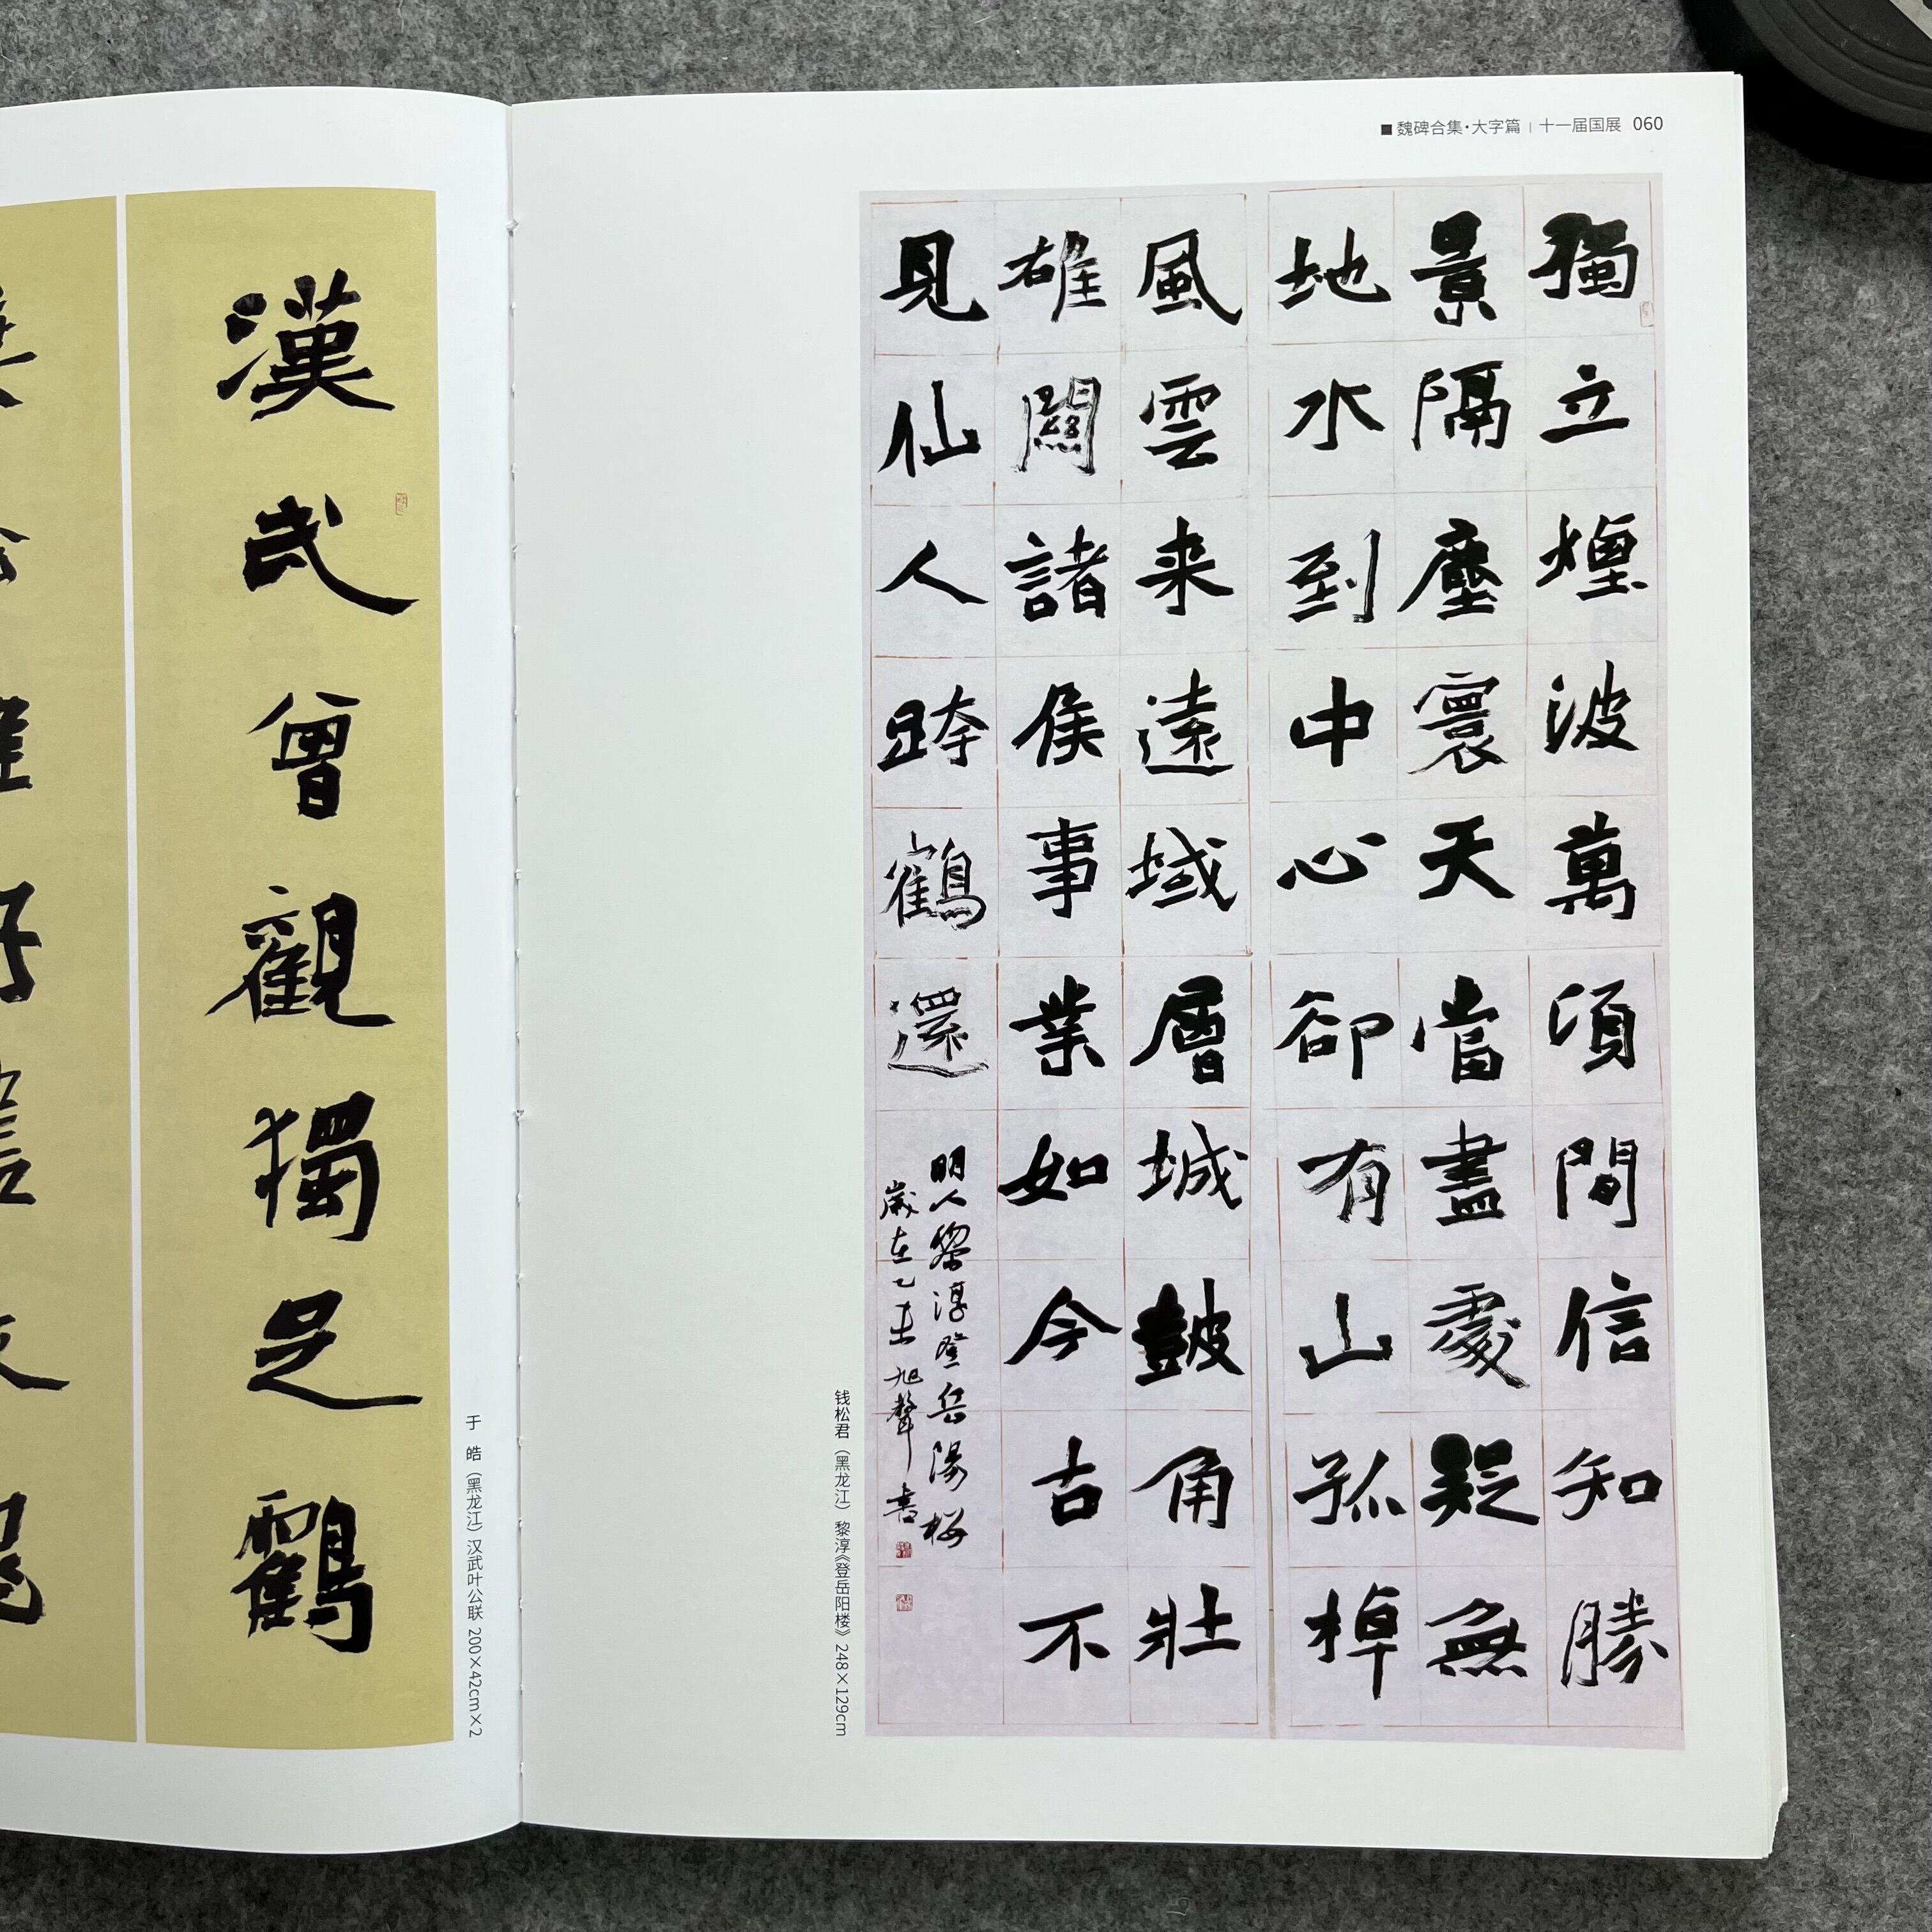 魏碑合集·大字篇 | 十一届国展 060
獨立煙波萬頃間信知勝
景隔塵寰天當盡處疑無
地水到中心卻有山孤棹
風雲来遠域層城鼓角壯
雄關諸侯事業如今古不
見仙人跨鶴還
明人黎淳登岳陽樓
歲在乙未旭聲書
钱松君（黑龙江） 黎淳《登岳阳楼》 248×129cm
于 皓（黑龙江）汉武叶公联 200×42cm×2
漢武曾觀獨足鸛